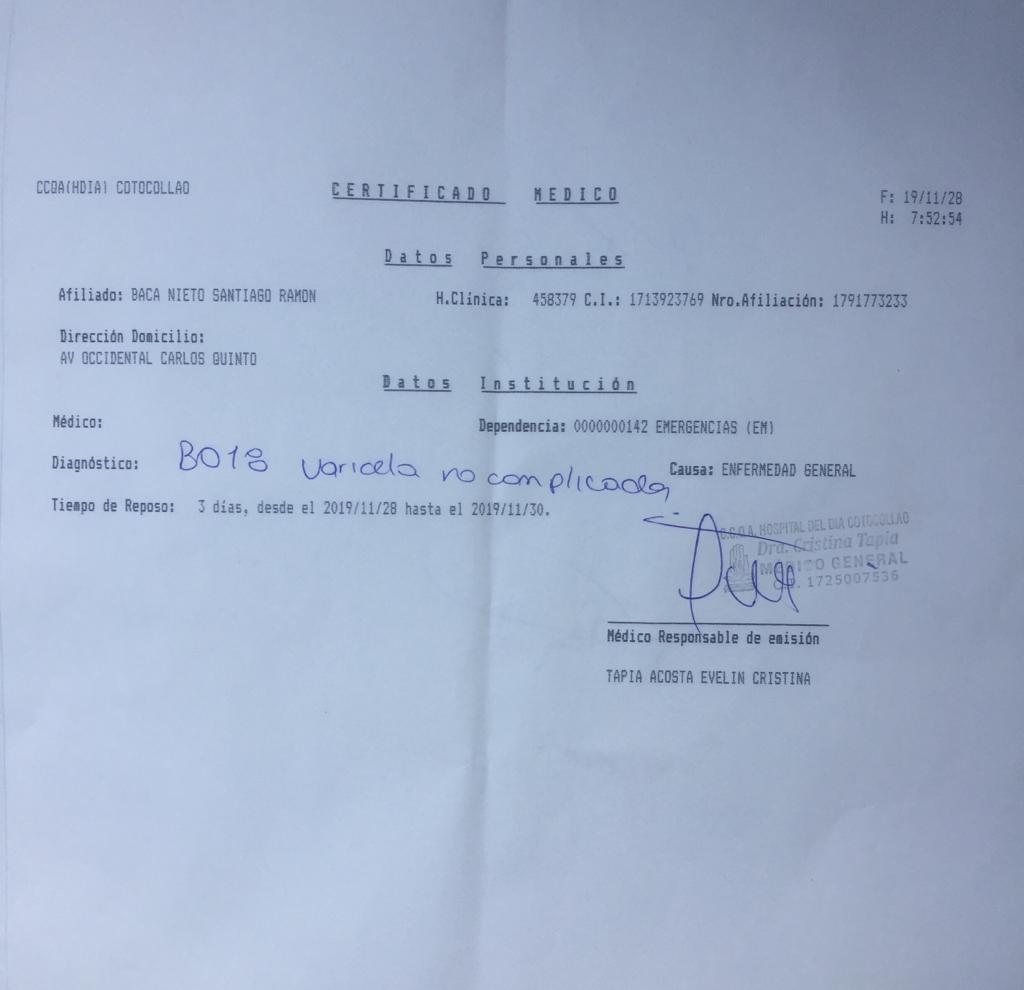 CCQA(HDIA) COTOCOLLAO
CERTIFICADO MEDICO
F: 19/11/28
H: 7:52:54
Datos Personales
Afiliado: BACA NIETO SANTIAGO RAMON H.Clinica: 458379 C.I.: 1713923769 Nro.Afiliación: 1791773233
Dirección Domicilio:
AV OCCIDENTAL CARLOS QUINTO
Datos Institución
Médico: Dependencia: 0000000142 EMERGENCIAS (EM)
Diagnóstico: B018 varicela no complicada Causa: ENFERMEDAD GENERAL
Tiempo de Reposo: 3 días, desde el 2019/11/28 hasta el 2019/11/30.
C.C.Q.A. HOSPITAL DEL DIA COTOCOLLAO
Dra. Cristina Tapia
MEDICO GENERAL
1725007536
Médico Responsable de emisión
TAPIA ACOSTA EVELIN CRISTINA